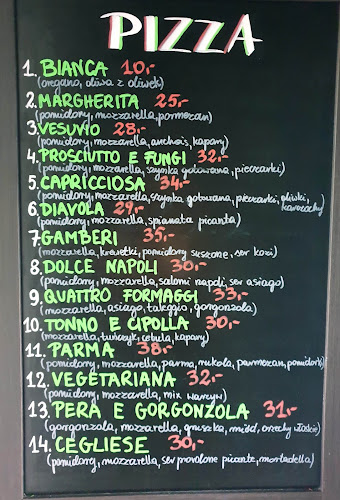 PIZZA
1. BIANCA 10,-
(oregano, oliwa z oliwek)
2. MARGHERITA 25,-
(pomidory, mozzarella, parmezan)
3. VESUVIO 28,-
(pomidory, mozzarella, anchois, kapary)
4. PROSCIUTTO E FUNGI 32,-
(pomidory, mozzarella, szynka gotowana, pieczarki)
5. CAPRICCIOSA 34,-
(pomidory, mozzarella, szynka gotowana, pieczarki, oliwki, karczochy)
6. DIAVOLA 29,-
(pomidory, mozzarella, spianata picanta)
7. GAMBERI 35,-
(mozzarella, krewetki, pomidory suszone, ser kozi)
8. DOLCE NAPOLI 30,-
(pomidory, mozzarella, salami napoli, ser asiago)
9. QUATTRO FORMAGGI 33,-
(mozzarella, asiago, taleggio, gorgonzola)
10. TONNO E CIPOLLA 30,-
(mozzarella, tuńczyk, cebula, kapary)
11. PARMA 38,-
(pomidory, mozzarella, parma, rukola, parmezan, pomidorki)
12. VEGETARIANA 32,-
(pomidory, mozzarella, mix warzyw)
13. PERA E GORGONZOLA 31,-
(gorgonzola, mozzarella, gruszka, miód, orzechy włoskie)
14. CEGLIESE 30,-
(pomidory, mozzarella, ser provolone picante, mortadella)